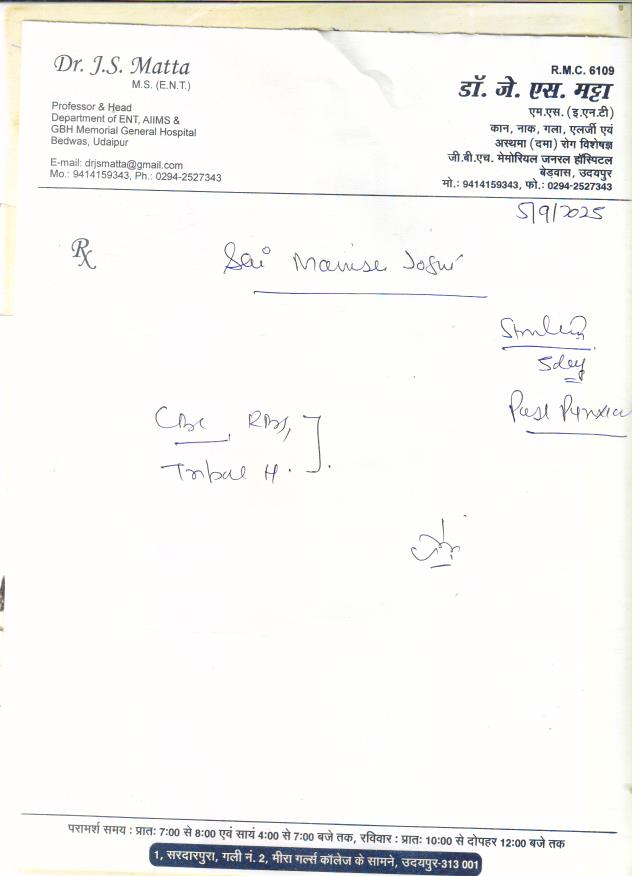 Dr. J.S. Matta
M.S. (E.N.T.)
Professor & Head
Department of ENT, AIIMS &
GBH Memorial General Hospital
Bedwas, Udaipur
E-mail: drjsmatta@gmail.com
Mo.: 9414159343, Ph.: 0294-2527343
R.M.C. 6109
डॉ. जे. एस. मट्टा
एम.एस. (इ.एन.टी)
कान, नाक, गला, एलर्जी एवं
अस्थमा (दमा) रोग विशेषज्ञ
जी.बी.एच. मेमोरियल जनरल हॉस्पिटल
बेड़वास, उदयपुर
मो.: 9414159343, फो.: 0294-2527343
5/9/2025
Rx
5day
CBC, RBS,
परामर्श समय : प्रातः 7:00 से 8:00 एवं सायं 4:00 से 7:00 बजे तक, रविवार : प्रातः 10:00 से दोपहर 12:00 बजे तक
1, सरदारपुरा, गली नं. 2, मीरा गर्ल्स कॉलेज के सामने, उदयपुर-313 001